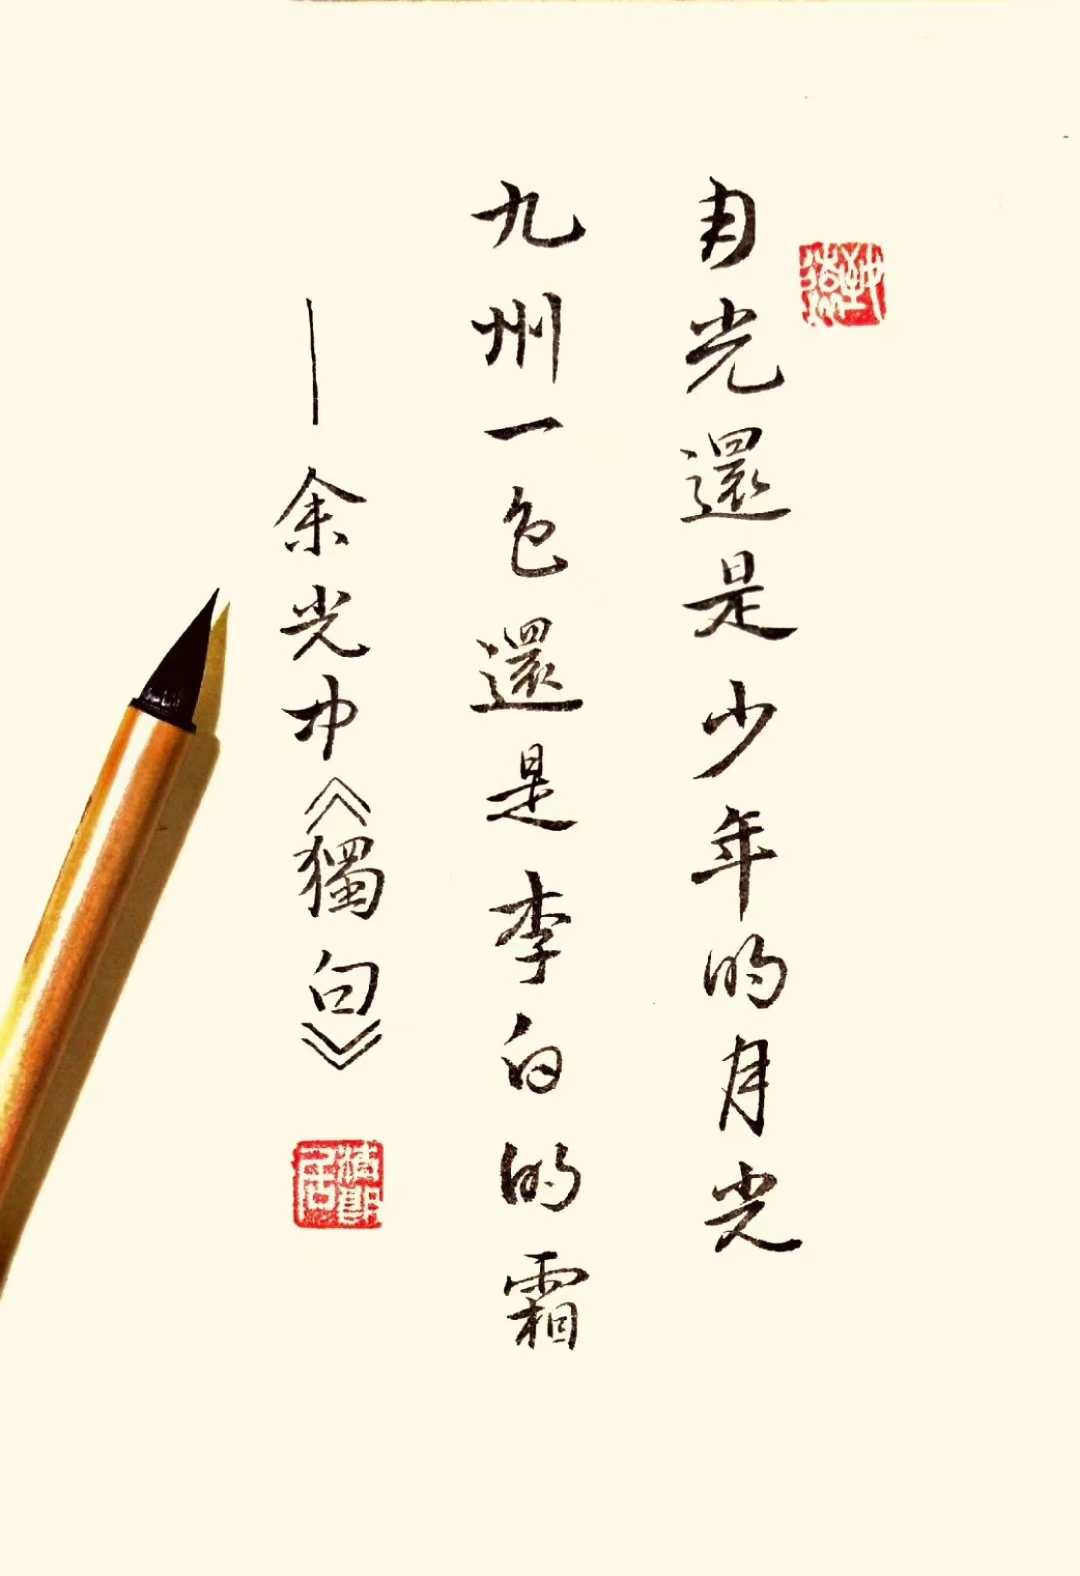 月光還是少年的月光
九州一色還是李白的霜
—余光中《獨白》